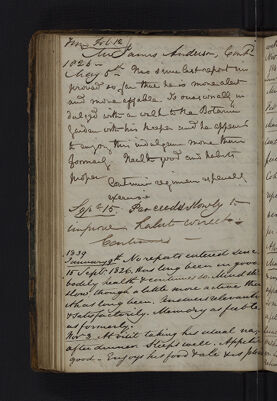 From Feb. 12
Mr James Anderson, Contd
1826 -
May 5th Has since last report im
proved so far that he is more alert
and more affable. Is occasionally in
dulged with a walk to the Botanic
Garden with his keeper and he appears
to enjoy this indulgence more than
formerly. Health good and habits
proper
Continue regimen especially
exercise
Sept 15. Proceeds slowly to
improve. habits correct
Continue
1829
January 9th No reports entered since
15 Sept 1826. Has long been in good
bodily health & continues so. Mind still
slow though a little more active than
it has long been. Answers relevantly
& satisfactorily. Memory as feeble
as formerly.
Nov 3 At visit taking his usual nap
after dinner. Sleeps well. Appetite
good - Enjoys his food & ale & is